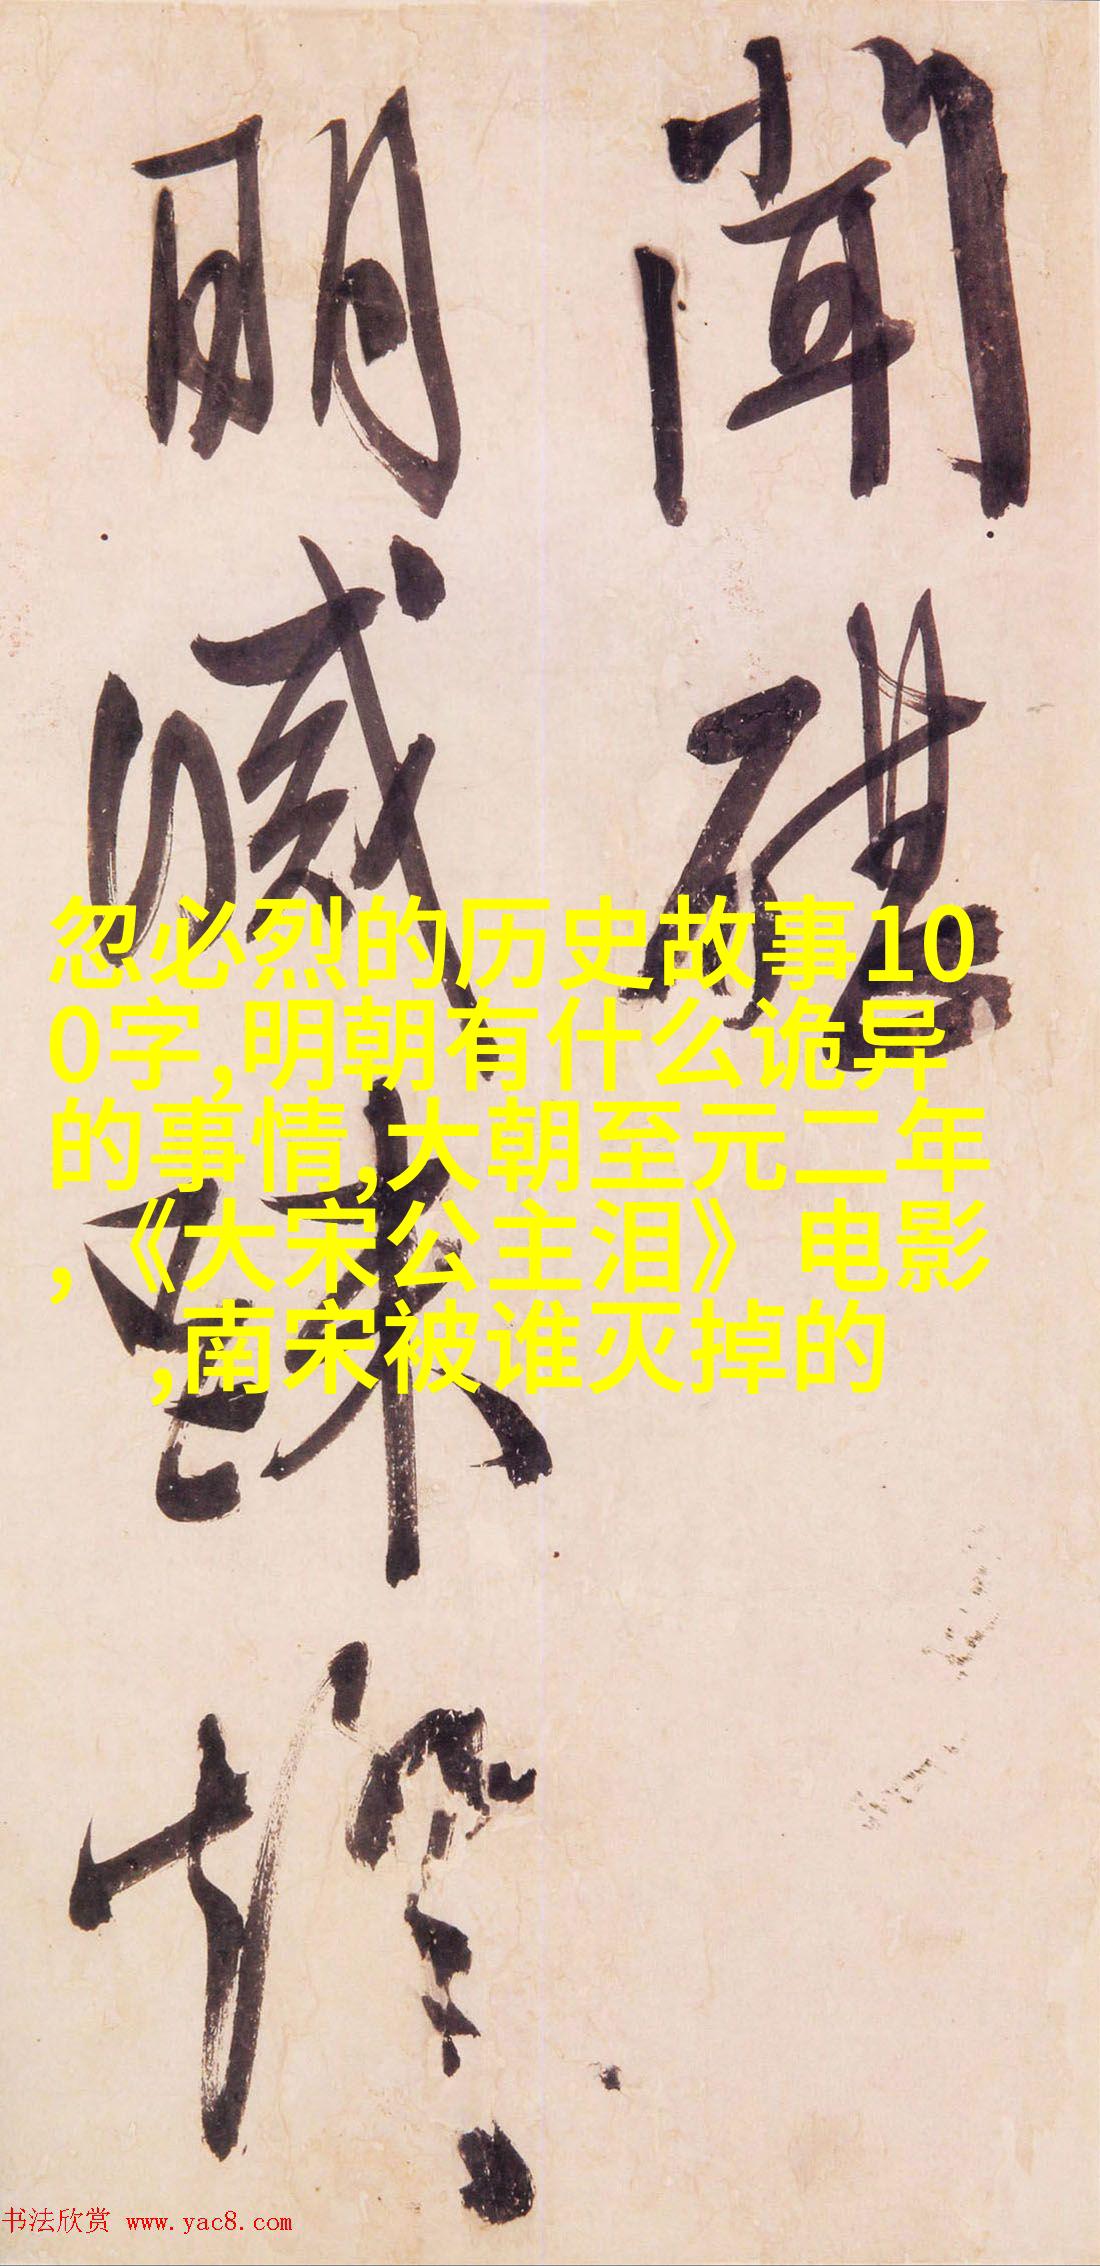 聞
明
忽必烈的历史故事10
0字,明朝有什么诡异
的事情,大朝至元二年
,《大宋公主泪》电影
,南宋被谁灭掉的
书法欣赏 www.yac8.com